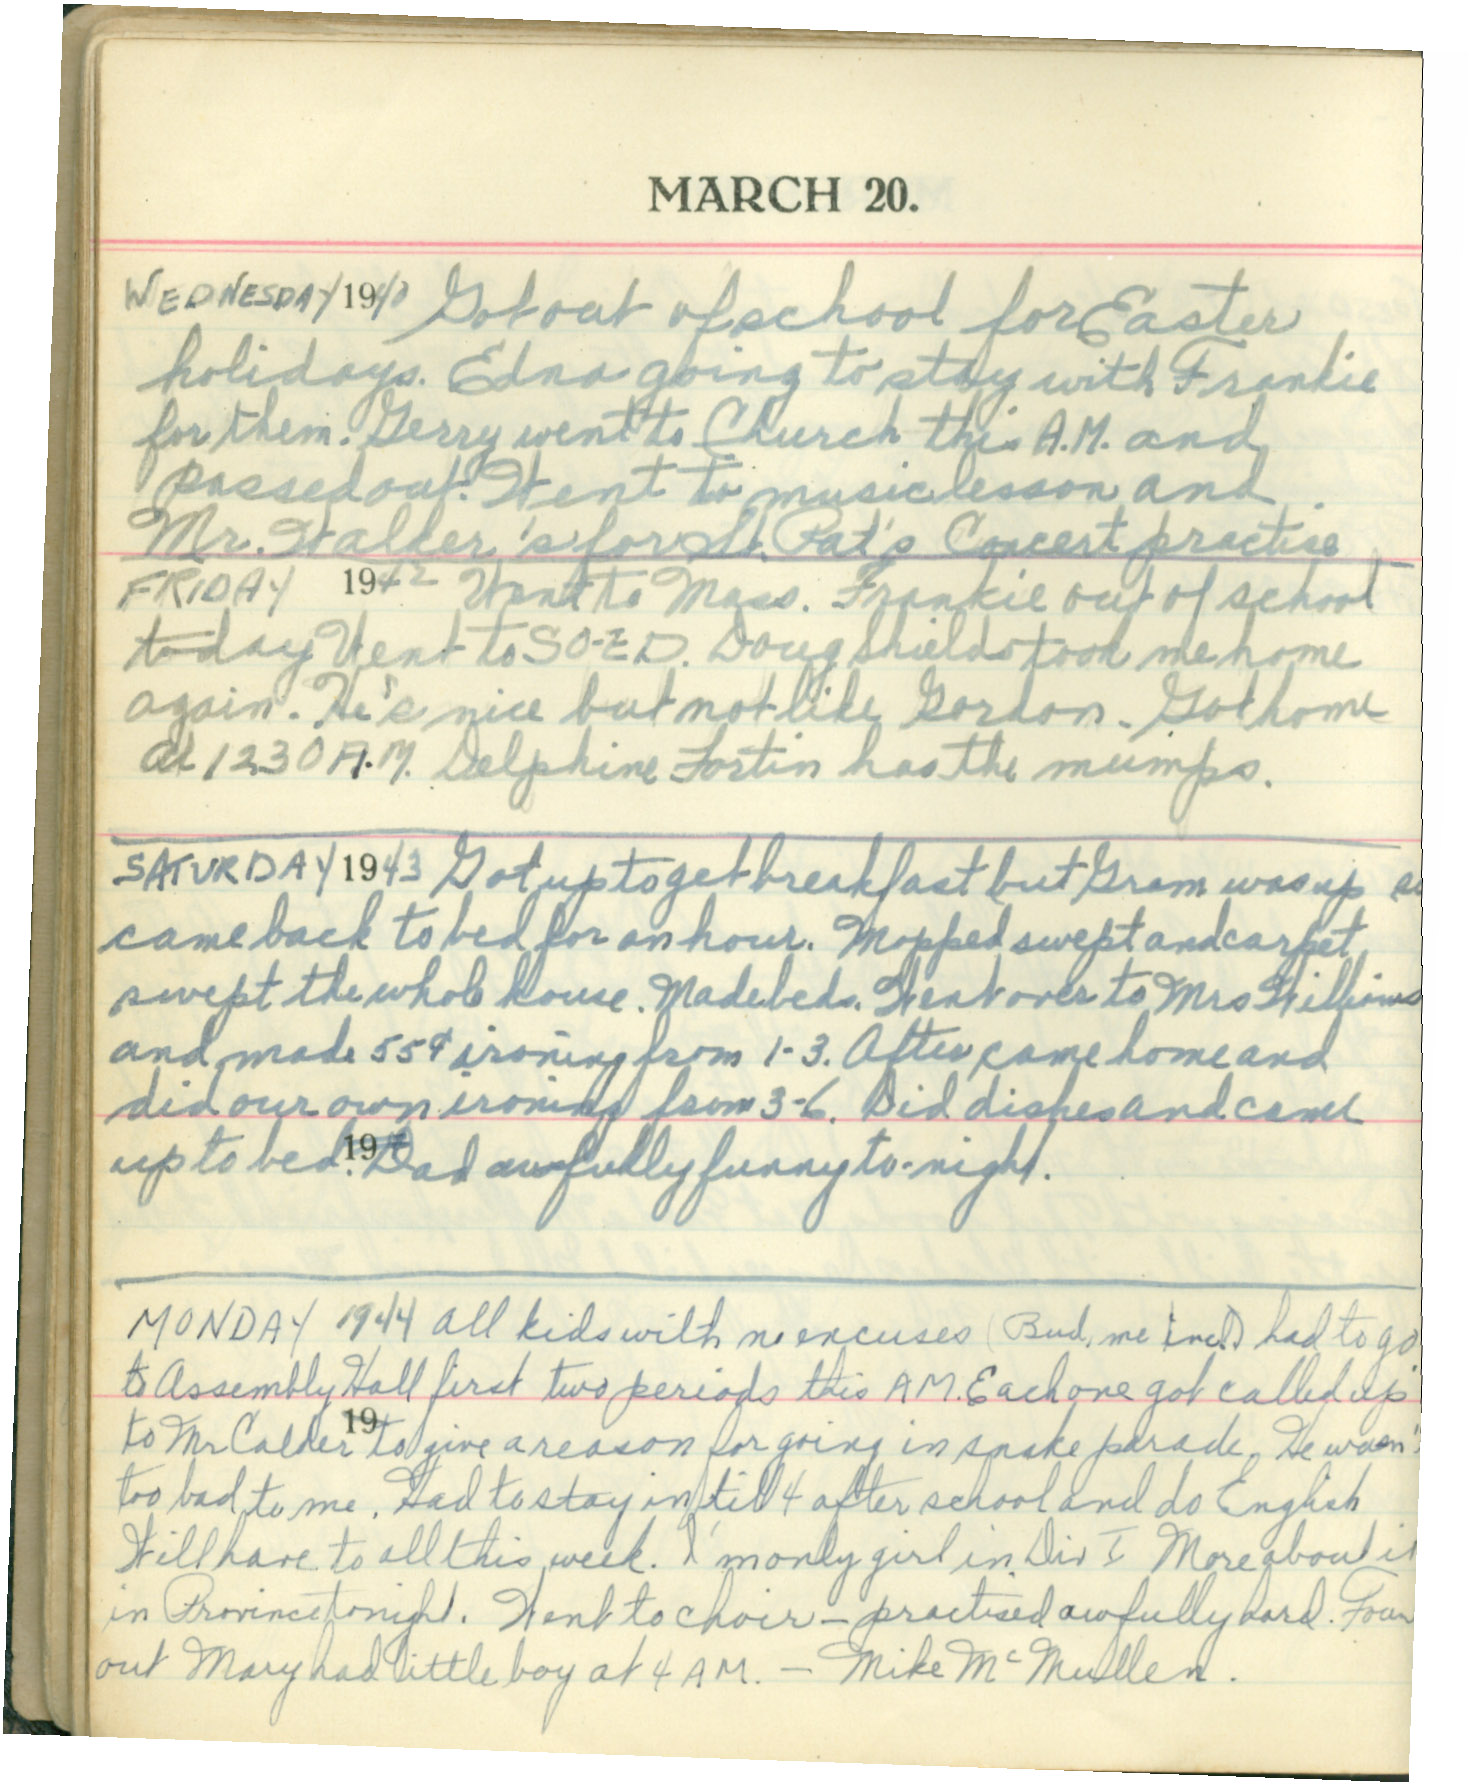 MARCH 20.
WEDNESDAY 1940 Got out of school for Easter
holidays. Edna going to stay with Frankie
for them. Gerry went to Church this A.M. and
passed out. Went to music lesson and
Mr. Walker's for St. Pat's Concert practise
FRIDAY 1942 Went to Mass. Frankie out of school
to-day Went to SO-ED. Doug Shields took me home
again. He's nice but not like Gordon. Got home
at 1230 A.M. Delphine Fortin has the mumps.
SATURDAY 1943 Got up to get breakfast but Gram was up so
came back to bed for an hour. Mopped swept and carpet
swept the whole house. Made beds. Went over to Mrs Williams
and made 55¢ ironing from 1-3. After came home and
did our own ironing from 3-6. Did dishes and came
up to bed. 19 Dad awfully funny to-night.
MONDAY 1944 All kids with no excuses (Bud, me incl.) had to go
to Assembly Hall first two periods this A.M. Each one got called up
19
to Mr Calder to give a reason for going in snake parade. He wasn't
too bad to me. Had to stay in till 4 after school and do English
Will have to all this week. I'm only girl in Div I More about it
in Province tonight. Went to choir — practised awfully hard. Foun
out Mary had little boy at 4 AM. — Mike McMullen.